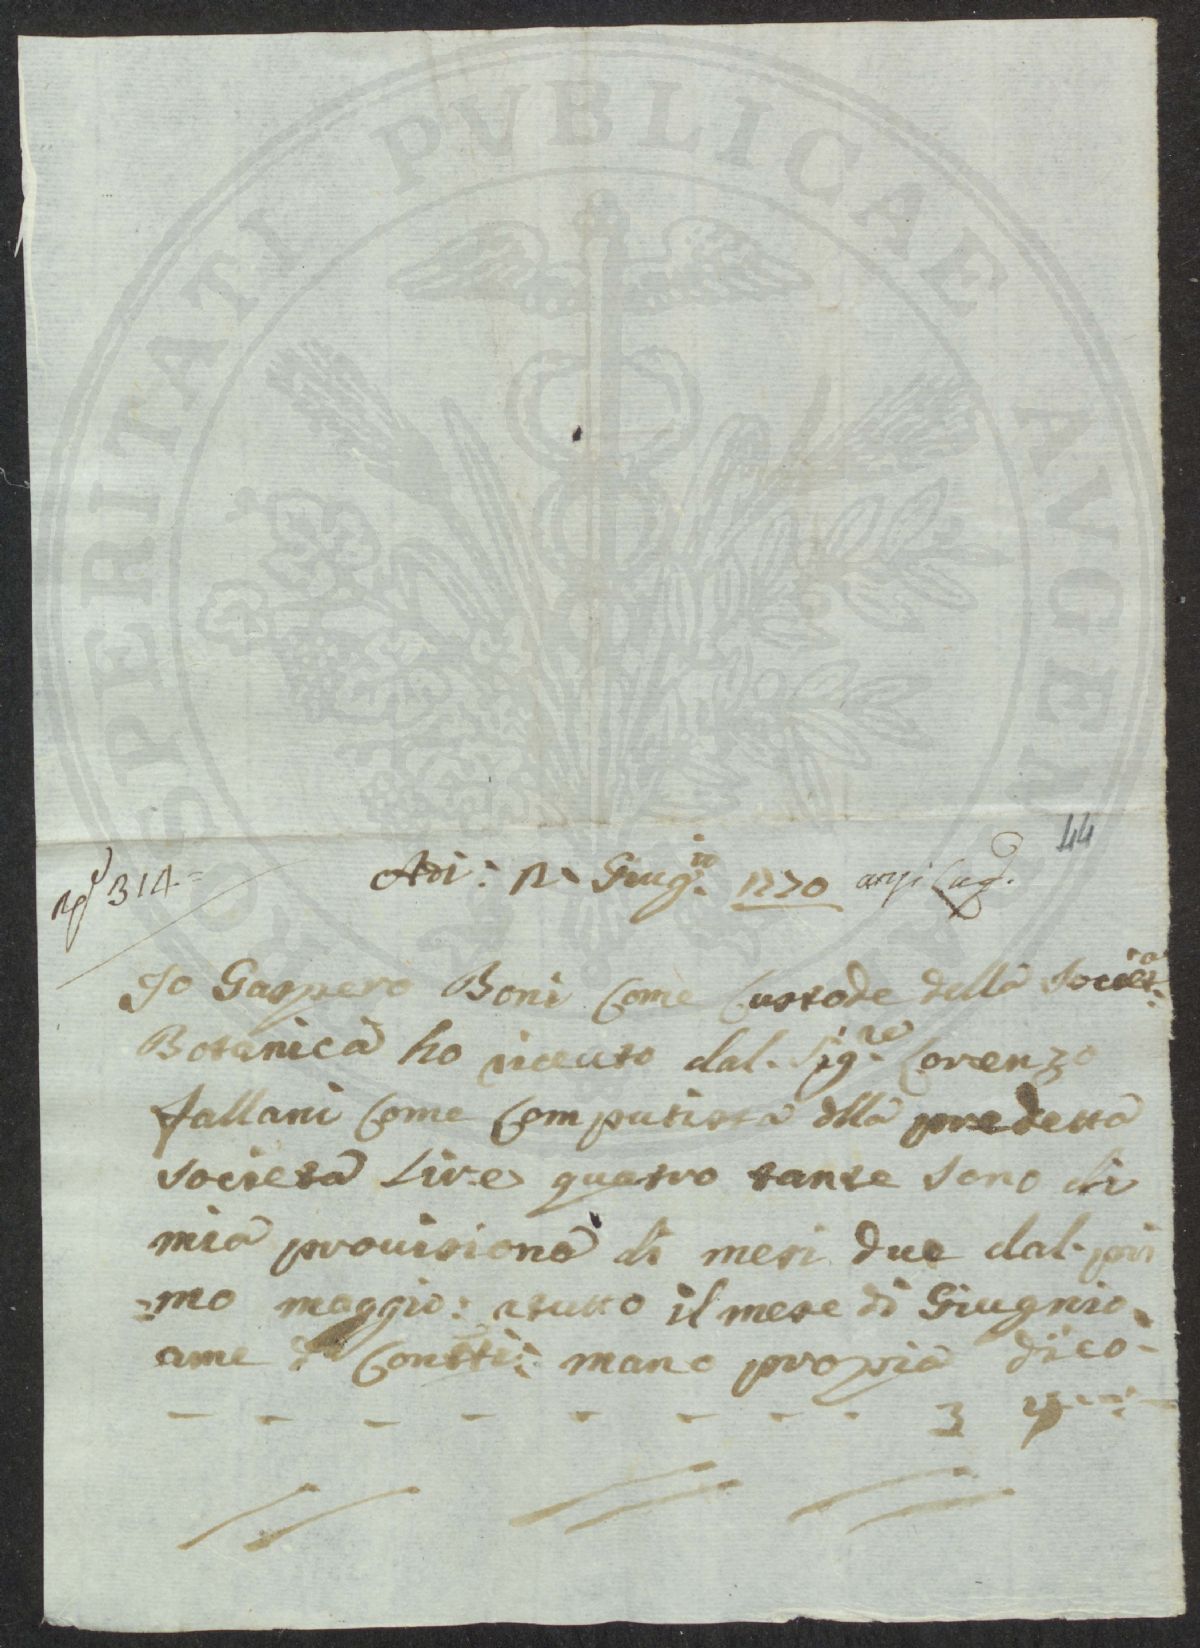 PROSPERITATI PVBLICAE AVGENDAE
44
N.º 314=
Adi: 12 Giug.io 1770 anzi Lug.º
Io Gaspero Boni Come Custode della Societ:a
Botanica ho riceuto dal. Sig.re Lorenzo
fallani Come Computista dlla predetta
Societa Lire quatro tante sono di
mia prouisiona di mesi due dal. pri
=mo maggio: atutto il mese di Giugnio
ame Contti: mano propia dico-
- - - - - - - 3 4----